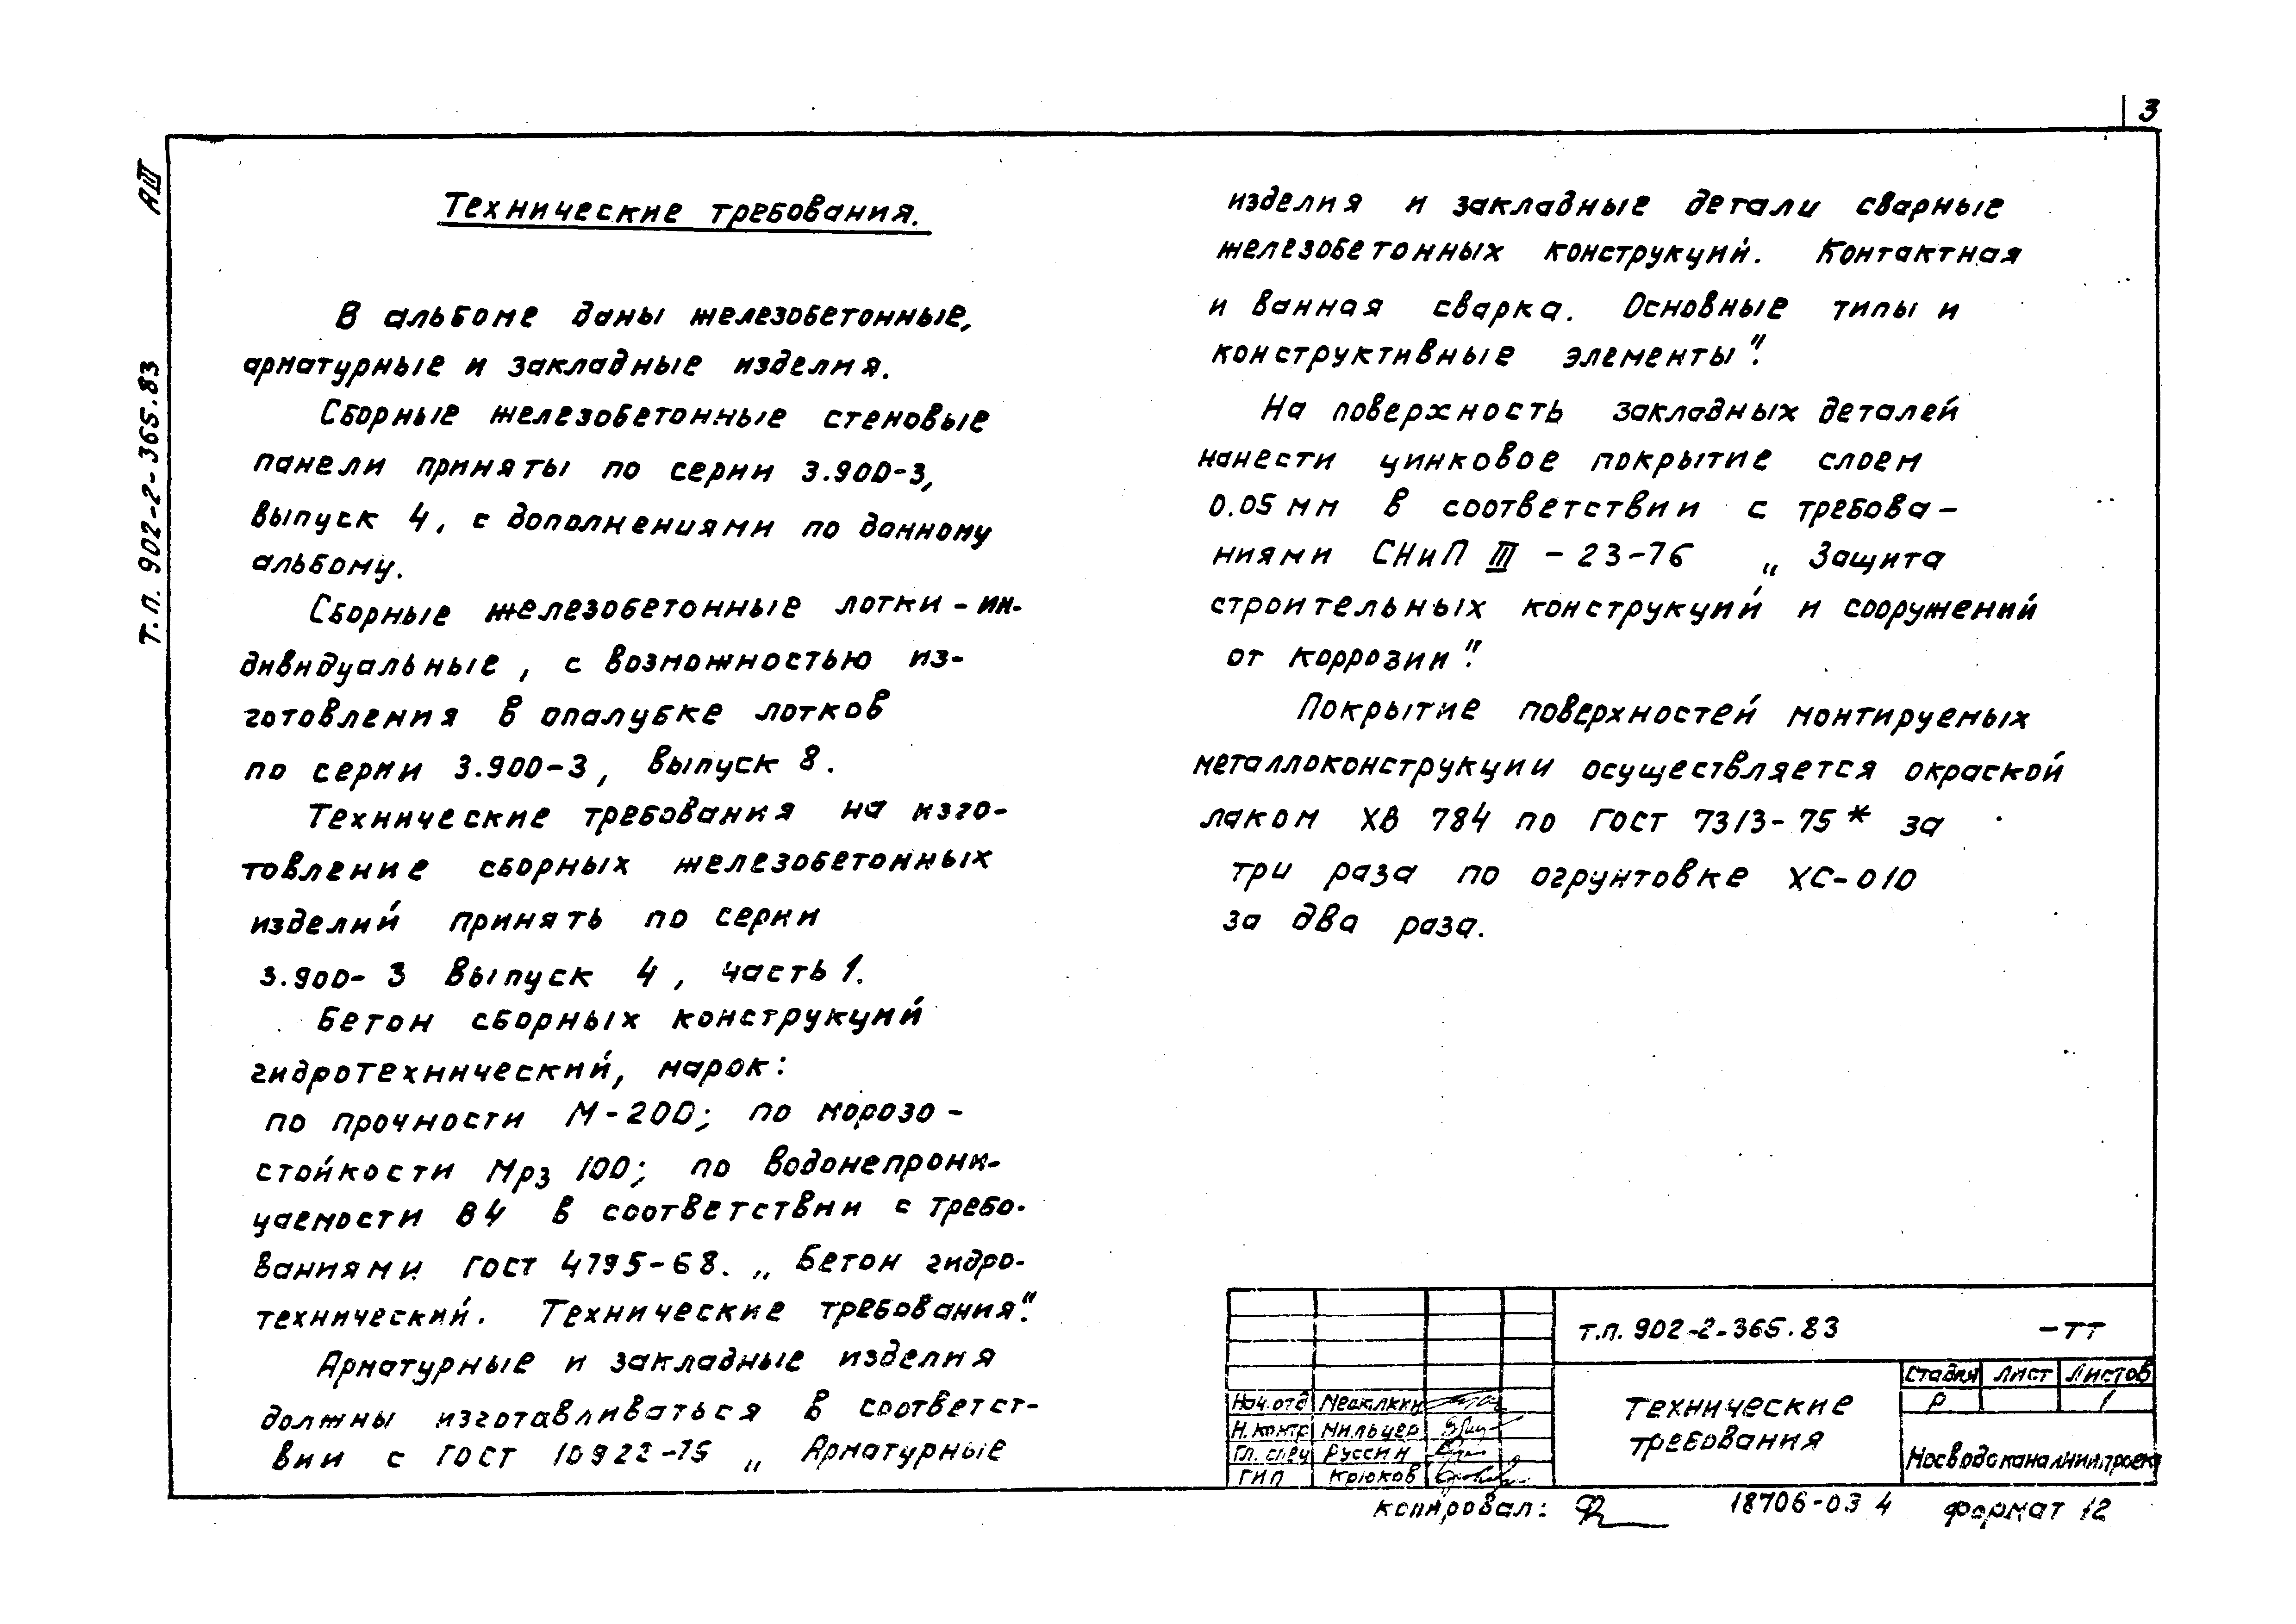 3
АIII
Т.П. 902-2-365.83
Технические требования.
В альбоме даны железобетонные,
арматурные и закладные изделия.
Сборные железобетонные стеновые
панели приняты по серии 3.900-3,
выпуск 4, с дополнениями по данному
альбому.
Сборные железобетонные лотки - ин-
дивидуальные, с возможностью из-
готовления в опалубке лотков
по серии 3.900-3, выпуск 8.
Технические требования на изго-
товление сборных железобетонных
изделий принять по серии
3.900-3 выпуск 4, часть 1.
Бетон сборных конструкций
гидротехнический, марок:
по прочности М-200; по морозо-
стойкости Мрз 100; по водонепрони-
цаемости В4 в соответствии с требо-
ваниями ГОСТ 4795-68. „Бетон гидро-
технический. Технические требования".
Арматурные и закладные изделия
должны изготавливаться в соответст-
вии с ГОСТ 10922-75 „Арматурные
изделия и закладные детали сварные
железобетонных конструкций. Контактная
и ванная сварка. Основные типы и
конструктивные элементы".
На поверхность закладных деталей
нанести цинковое покрытие слоем
0.05 мм в соответствии с требова-
ниями СНиП III - 23-76 „Защита
строительных конструкций и сооружений
от коррозии".
Покрытие поверхностей монтируемых
металлоконструкции осуществляется окраской
лаком ХВ 784 по ГОСТ 7313-75* за
три раза по огрунтовке ХС-010
за два раза.
Т.П. 902-2-365.83 -ТТ
Технические
требования
Стадия Лист Листов
Р 1
Мосводоканалниипроект
Нач.отд
Н.контр Мильцер
Гл. спец Руссин
ГИП Крюков
Копировал: 18706-03 4 Формат 12